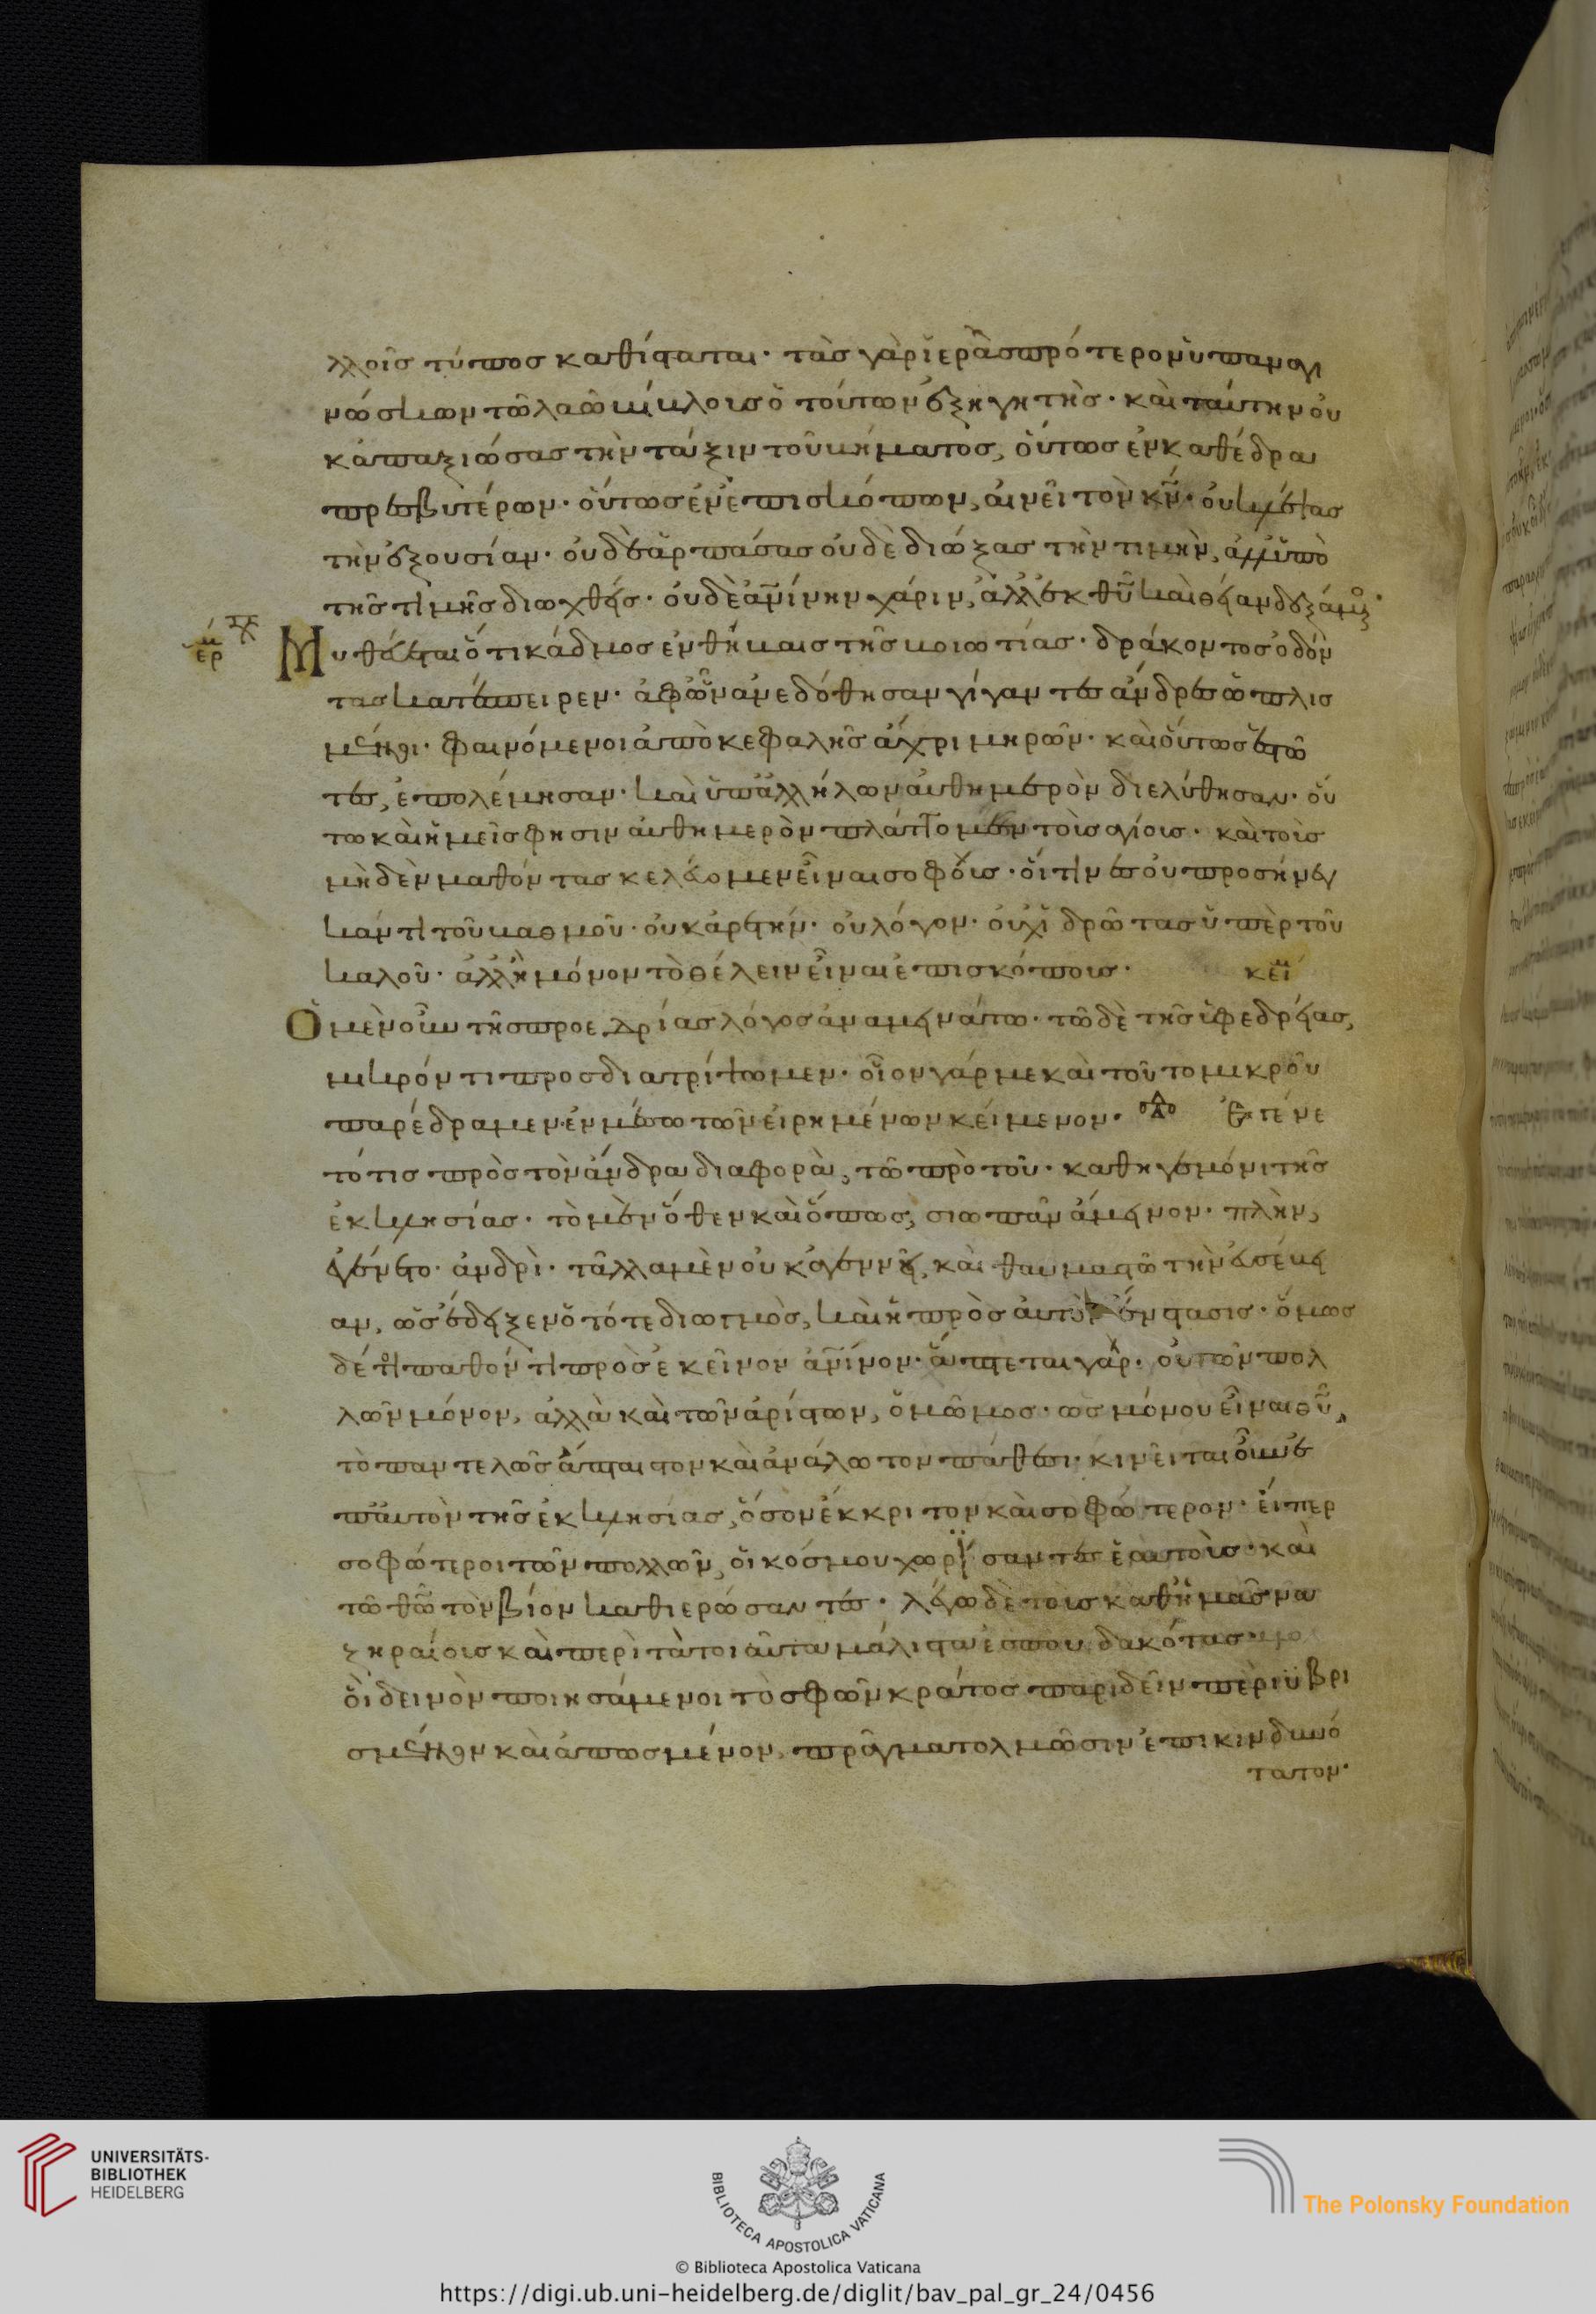 ἑρμ
λλοις τύπος καθίσταται· τὰς γὰρ ἱερὰς πρότερον ὑπαναγι
νώσκων τῶ λαῶ βίβλους ὁ τούτων ἐξηγητὴς· καὶ ταύτην οὐ
κ ἀπαξιώσας τὴν τάξιν τοῦ βήματος, οὕτως ἐν καθέδρα
πρεσβυτέρων· οὕτως ἐν ἐπισκόπων, αἰνεῖ τὸν κν̄· οὐ κλέψας
τὴν ἐξουσίαν· οὐδὲ ἁρπάσας οὐδὲ διώξας τὴν τιμὴν, ἀλλ' ὑπὸ
τῆς τιμῆς διωχθείς· οὐδὲ ἀνίνην χάριν, ἀλλ' ἐκ θῡ καὶ θείαν δεξάμενος·
Μυθεύεται ὅτι κάδμος ἐν θήβαις τῆς βοιωτίας· δράκοντος ὀδόν
τας κατέσπειρεν· ἀφ' ὧν ἀνεδόθησαν γίγαντες ἄνδρες ὡπλισ
μένοι· φαινόμενοι ἀπὸ κεφαλῆς ἄχρι μηρῶν· καὶ οὕτως ἐστῶ
τες, ἐπολέμησαν· καὶ ὑπ' ἀλλήλων αὐθημερὸν διελύθησαν· οὕ
τω καὶ ἡμεῖς φησιν αὐθημερὸν πλάττομεν τοὺς ἁγίους· καὶ τοὺς
μηδὲν μαθόντας κελεύομεν εἶναι σοφούς· οἵτινες οὐ προσήνεγ
καν τὶ τοῦ βαθμοῦ· οὐκ ἀρετήν· οὐ λόγον· οὐχ' ἱδρῶτας ὑπὲρ τοῦ
καλοῦ· ἀλλ' ἢ μόνον τὸ θέλειν εἶναι ἐπισκόπους· κεί
Ὁ μὲν οὖν τῆς προεδρίας λόγος ἀναμεινάτω· τῶ δὲ τῆς ὑφεδρείας,
μικρόν τι προσδιατρίψωμεν· οἷον γάρ με καὶ τοῦτο μικροῦ
παρέδραμεν ἐν μέσω τῶν εἰρημένων κείμενον· Ἐγένε
τό τις πρὸς τὸν ἄνδρα διαφορὰ, τῶ πρὸ τοῦ· καθηγεμόνι τῆς
ἐκκλησίας· τὸ μὲν ὅθεν καὶ ὅπως, σιωπᾶν ἄμεινον· πλὴν,
ἐγένετο· ἀνδρὶ· τἄλλα μὲν οὐκ ἀγεννεῖ, καὶ θαυμαστῶ τὴν εὐσέβει
αν, ὡς ἔδειξεν ὁ τότε διωγμὸς, καὶ ἡ πρὸς αὐτὸν ἔνστασις· ὅμως
δέ τι παθόντι πρὸς ἐκεῖνον ἀνίνον· ἅπτεται γὰρ· οὐ τῶν πολ
λῶν μόνον, ἀλλὰ καὶ τῶν ἀρίστων, ὁ μῶμος· ὡς μόνου εἶναι θῡ,
τὸ παντελῶς ἄπταιστον καὶ ἀνάλωτον πάθεσι· κινεῖται οὖν ἐ
π' αὐτὸν τῆς ἐκκλησίας, ὅσον ἔκκριτον καὶ σοφώτερον· εἴπερ
σοφώτεροι τῶν πολλῶν, οἱ κόσμου χωρίσαντες ἑαυτοὺς· καὶ
τῶ θῶ̄ τὸν βίον καθιερώσαντες· λέγω δὲ τοὺς καθ' ἡμᾶς να
ζηραίους καὶ περὶ τὰ τοιαῦτα μάλιστα ἐσπουδακότας·
οἳ δεινὸν ποιησάμενοι τὸ σφῶν κράτος παριδεῖν περιϋβρι
σμένον καὶ ἀπωσμένον, πρᾶγμα τολμῶσιν ἐπικινδυνό
τατον·
UNIVERSITÄTS-
BIBLIOTHEK
HEIDELBERG
BIBLIOTECA APOSTOLICA VATICANA
The Polonsky Foundation
© Biblioteca Apostolica Vaticana
https://digi.ub.uni-heidelberg.de/diglit/bav_pal_gr_24/0456